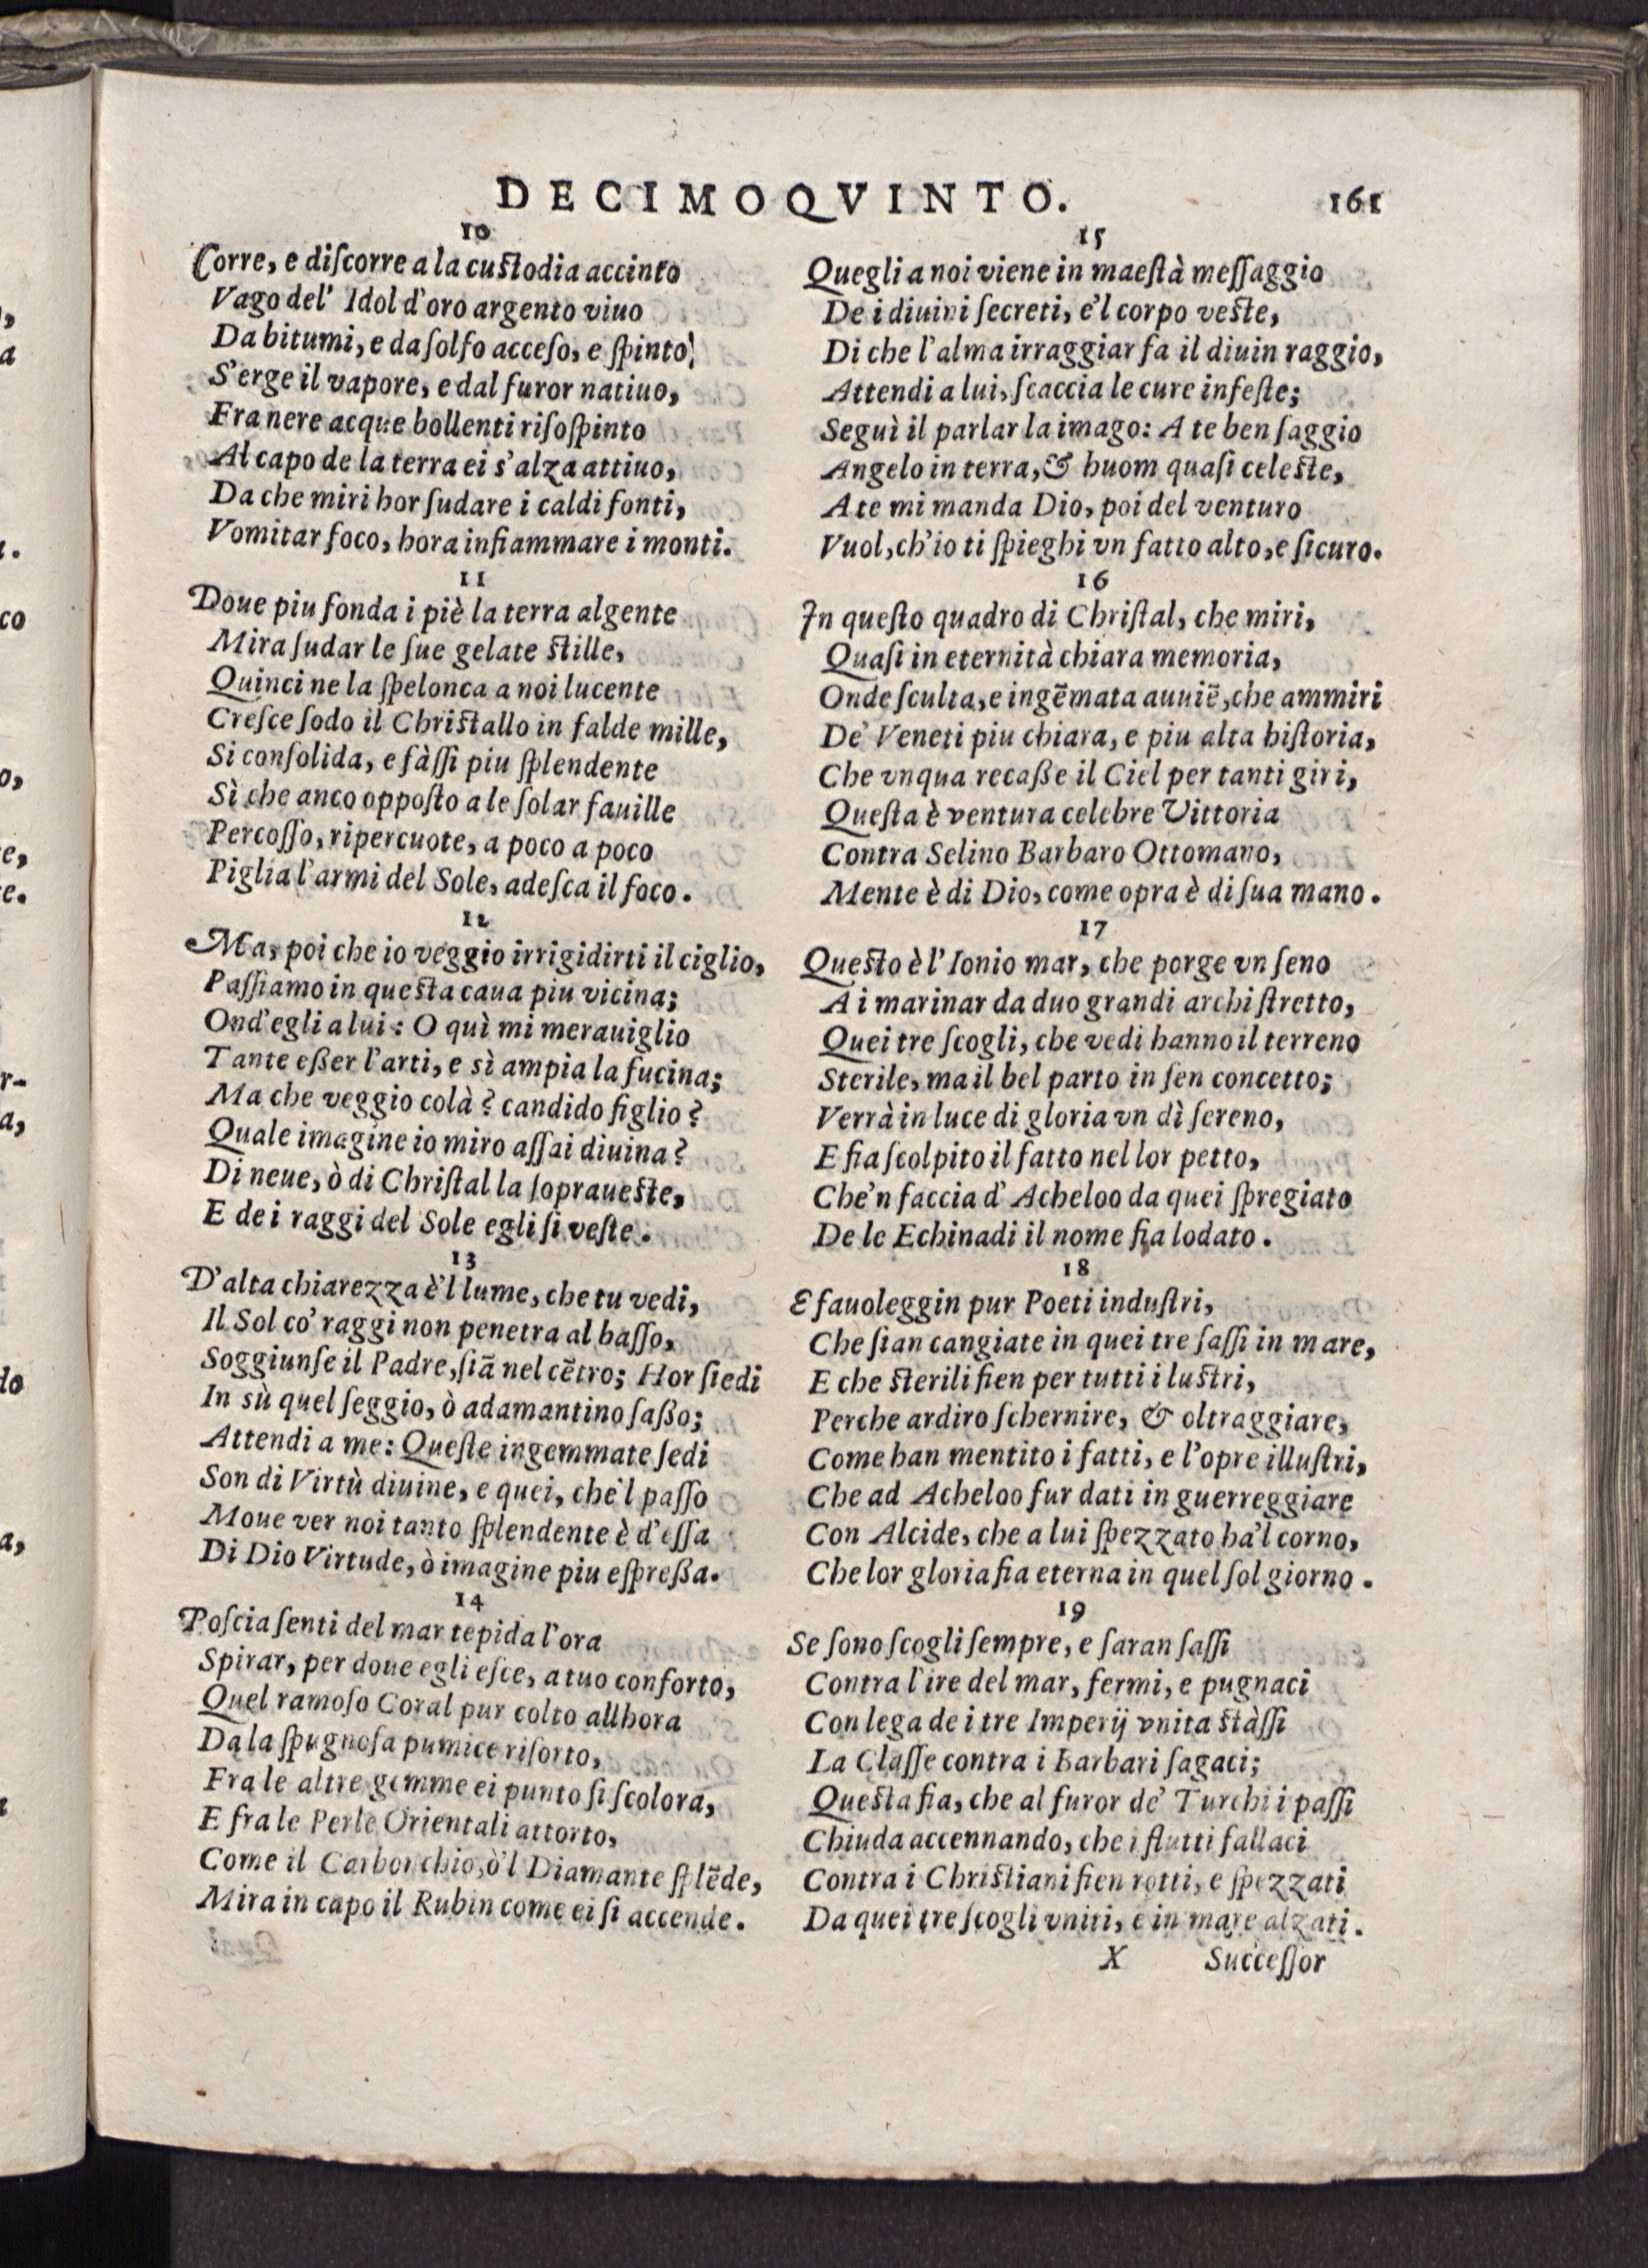 DECIMOQVINTO. 161
10
Corre, e diſcorre a la cuſtodia accinto
Vago del' Idol d'oro argento viuo
Da bitumi, e da ſolfo acceſo, e ſpinto,
S'erge il vapore, e dal furor natiuo,
Fra nere acque bollenti riſoſpinto
Al capo de la terra ei s'alza attiuo,
Da che miri hor ſudare i caldi fonti,
Vomitar foco, hora infiammare i monti.
11
Doue piu fonda i piè la terra algente
Mira ſudar le ſue gelate ſtille,
Quinci ne la ſpelonca a noi lucente
Creſce ſodo il Chriſtallo in falde mille,
Si conſolida, e fàſſi piu ſplendente
Sì che anco oppoſto a le ſolar fauille
Percoſſo, ripercuote, a poco a poco
Piglia l'armi del Sole, adeſca il foco.
12
Ma, poi che io veggio irrigidirti il ciglio,
Paſſiamo in queſta caua piu vicina;
Ond'egli a lui: O quì mi merauiglio
Tante eßer l'arti, e sì ampia la fucina;
Ma che veggio colà? candido figlio?
Quale imagine io miro aſſai diuina?
Di neue, ò di Chriſtal la ſopraueſte,
E de i raggi del Sole egli ſi veſte.
13
D'alta chiarezza è'l lume, che tu vedi,
Il Sol co' raggi non penetra al baſſo,
Soggiunſe il Padre, ſiā nel cētro; Hor ſiedi
In sù quel ſeggio, ò adamantino ſaßo;
Attendi a me: Queſte ingemmate ſedi
Son di Virtù diuine, e quei, che'l paſſo
Moue ver noi tanto ſplendente è d'eſſa
Di Dio Virtude, ò imagine piu eſpreßa.
14
Poſcia ſenti del mar tepida l'ora
Spirar, per doue egli eſce, a tuo conforto,
Quel ramoſo Coral pur colto allhora
Da la ſpugnoſa pumice riſorto,
Fra le altre gemme ei punto ſi ſcolora,
E fra le Perle Orientali attorto,
Come il Carbonchio, ò'l Diamante ſplēde,
Mira in capo il Rubin come ei ſi accende.
15
Quegli a noi viene in maeſtà meſſaggio
De i diuini ſecreti, e'l corpo veſte,
Di che l'alma irraggiar fa il diuin raggio,
Attendi a lui, ſcaccia le cure infeſte;
Seguì il parlar la imago: A te ben ſaggio
Angelo in terra, & huom quaſi celeſte,
A te mi manda Dio, poi del venturo
Vuol, ch'io ti ſpieghi vn fatto alto, e ſicuro.
16
In queſto quadro di Chriſtal, che miri,
Quaſi in eternità chiara memoria,
Onde ſculta, e ingēmata auuiē, che ammiri
De' Veneti piu chiara, e piu alta hiſtoria,
Che vnqua recaße il Ciel per tanti giri,
Queſta è ventura celebre Vittoria
Contra Selino Barbaro Ottomano,
Mente è di Dio, come opra è di ſua mano.
17
Queſto è l'Ionio mar, che porge vn ſeno
A i marinar da duo grandi archi ſtretto,
Quei tre ſcogli, che vedi hanno il terreno
Sterile, ma il bel parto in ſen concetto;
Verrà in luce di gloria vn dì ſereno,
E fia ſcolpito il fatto nel lor petto,
Che'n faccia d'Acheloo da quei ſpregiato
De le Echinadi il nome fia lodato.
18
E fauoleggin pur Poeti induſtri,
Che ſian cangiate in quei tre ſaſſi in mare,
E che ſterili fien per tutti i luſtri,
Perche ardiro ſchernire, & oltraggiare,
Come han mentito i fatti, e l'opre illuſtri,
Che ad Acheloo fur dati in guerreggiare
Con Alcide, che a lui ſpezzato ha'l corno,
Che lor gloria fia eterna in quel ſol giorno.
19
Se ſono ſcogli ſempre, e ſaran ſaſſi
Contra l'ire del mar, fermi, e pugnaci
Con lega de i tre Imperij vnita ſtàſſi
La Claſſe contra i Barbari ſagaci;
Queſta fia, che al furor de' Turchi i paſſi
Chiuda accennando, che i flutti fallaci
Contra i Chriſtiani fien rotti, e ſpezzati
Da quei tre ſcogli vniti, e in mare alzati.
X Succeſſor